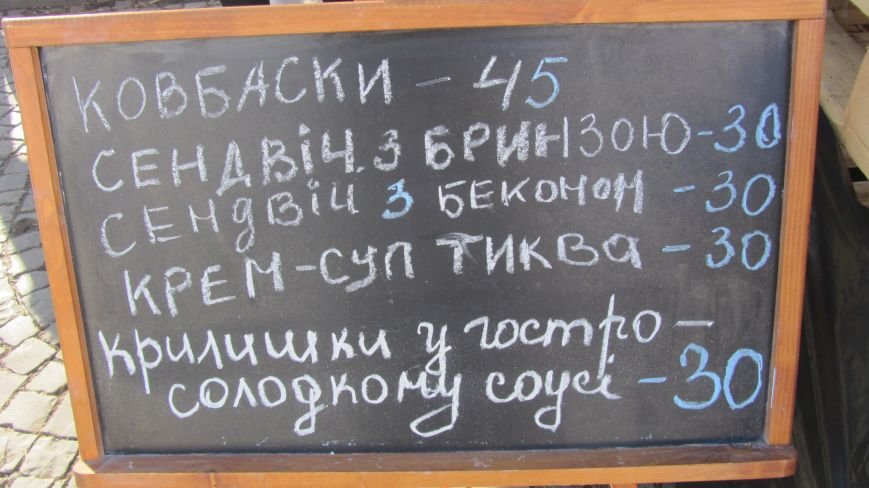 КОВБАСКИ - 45
СЕНДВІЧ З БРИНЗОЮ-30
СЕНДВІЧ З БЕКОНОМ - 30
КРЕМ-СУП ТИКВА - 30
крилишки у гостро -
солодкому соусі - 30